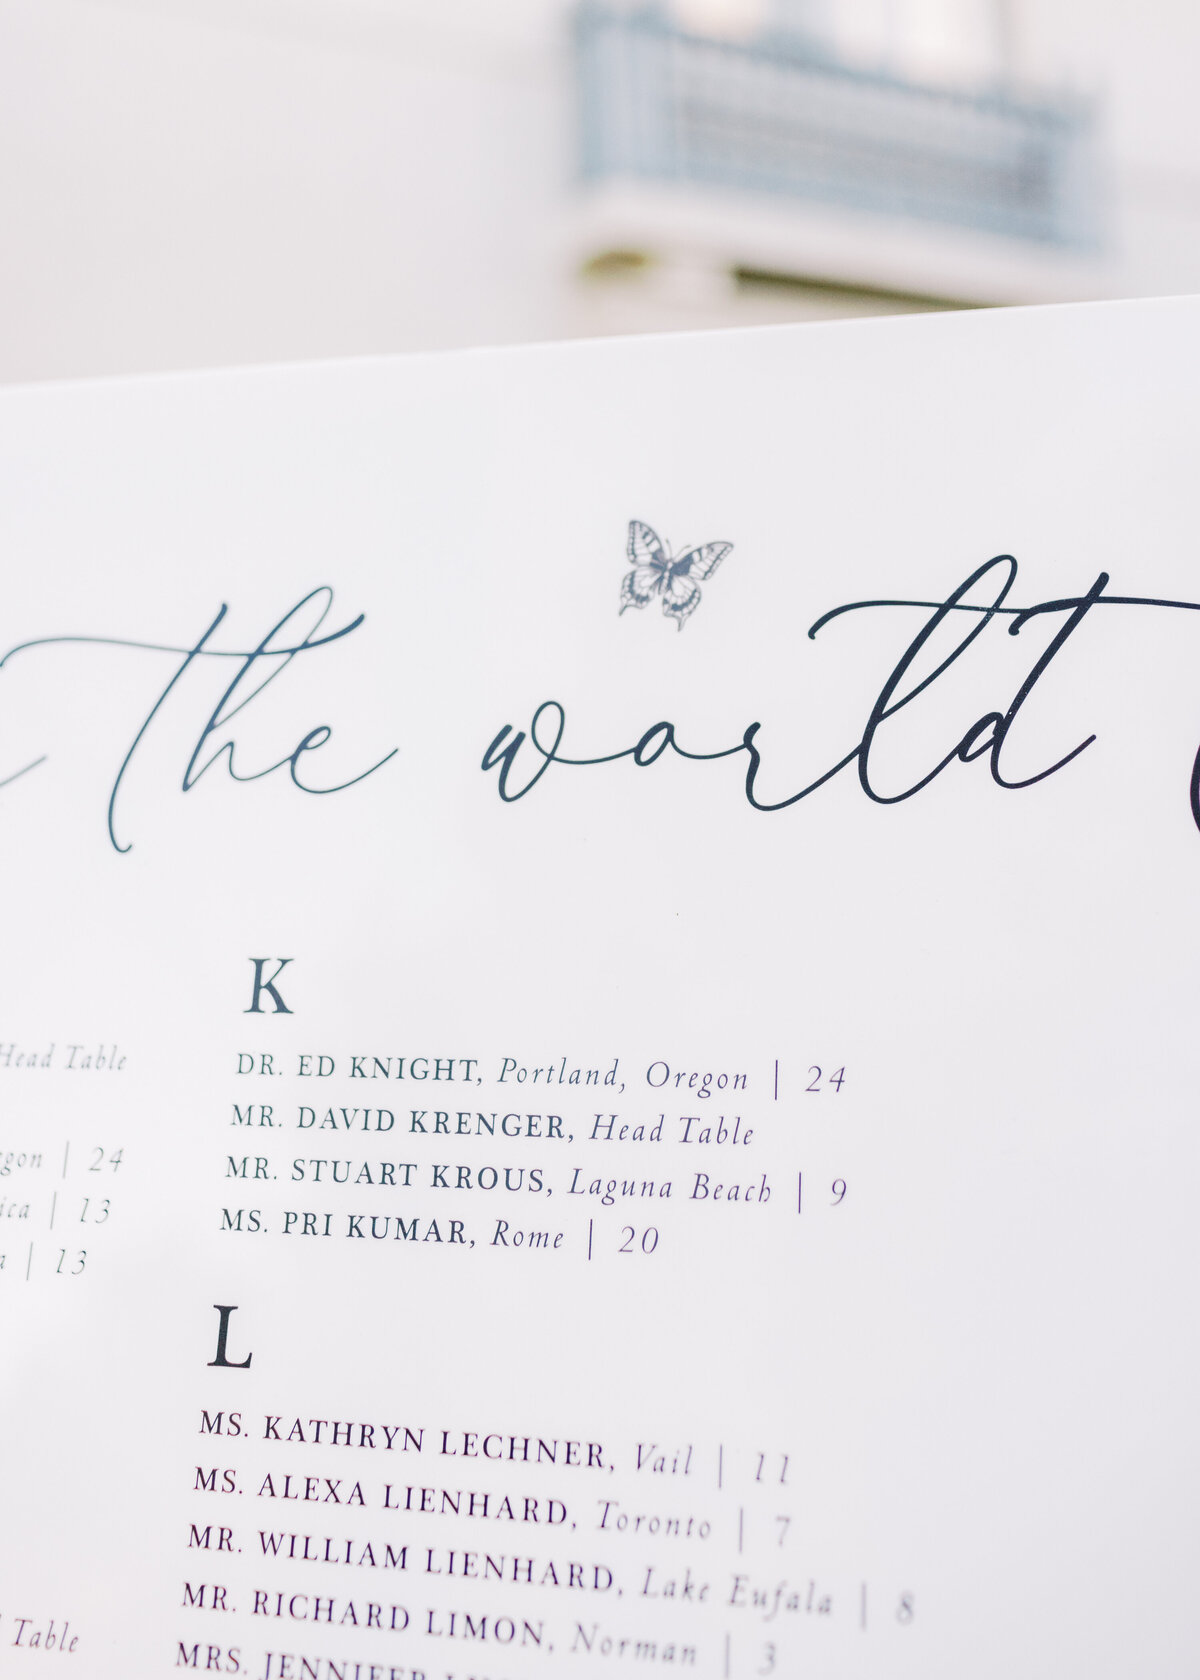 the world
Head Table
24
13
13
Table
K
DR. ED KNIGHT, Portland, Oregon | 24
MR. DAVID KRENGER, Head Table
MR. STUART KROUS, Laguna Beach | 9
MS. PRI KUMAR, Rome | 20
L
MS. KATHRYN LECHNER, Vail | 11
MS. ALEXA LIENHARD, Toronto | 7
MR. WILLIAM LIENHARD, Lake Eufala | 8
MR. RICHARD LIMON, Norman | 3
MRS. JENNIFER